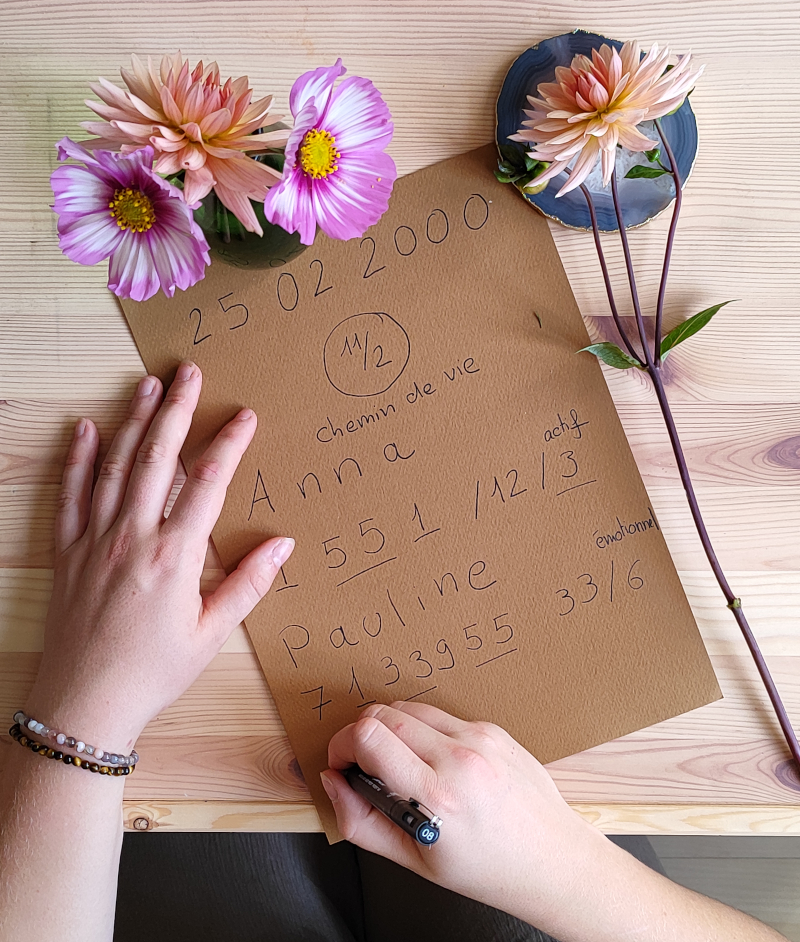 25 02 2000
11/2
chemin de vie
Anna
actif
1 5 5 1 /12/3
Pauline
émotionnel
7 1 3 3 9 5 5 33/6
08